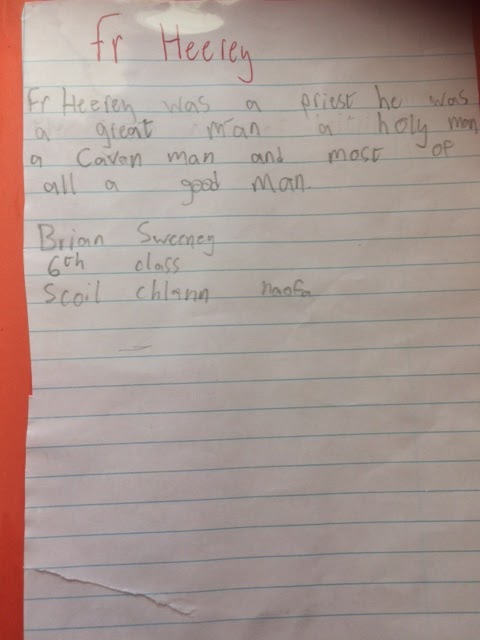 Fr Heerey
Fr Heerey was a priest he was
a great man a holy man
a Cavan man and most of
all a good man.
Brian Sweeney
6th class
Scoil chlann naofa